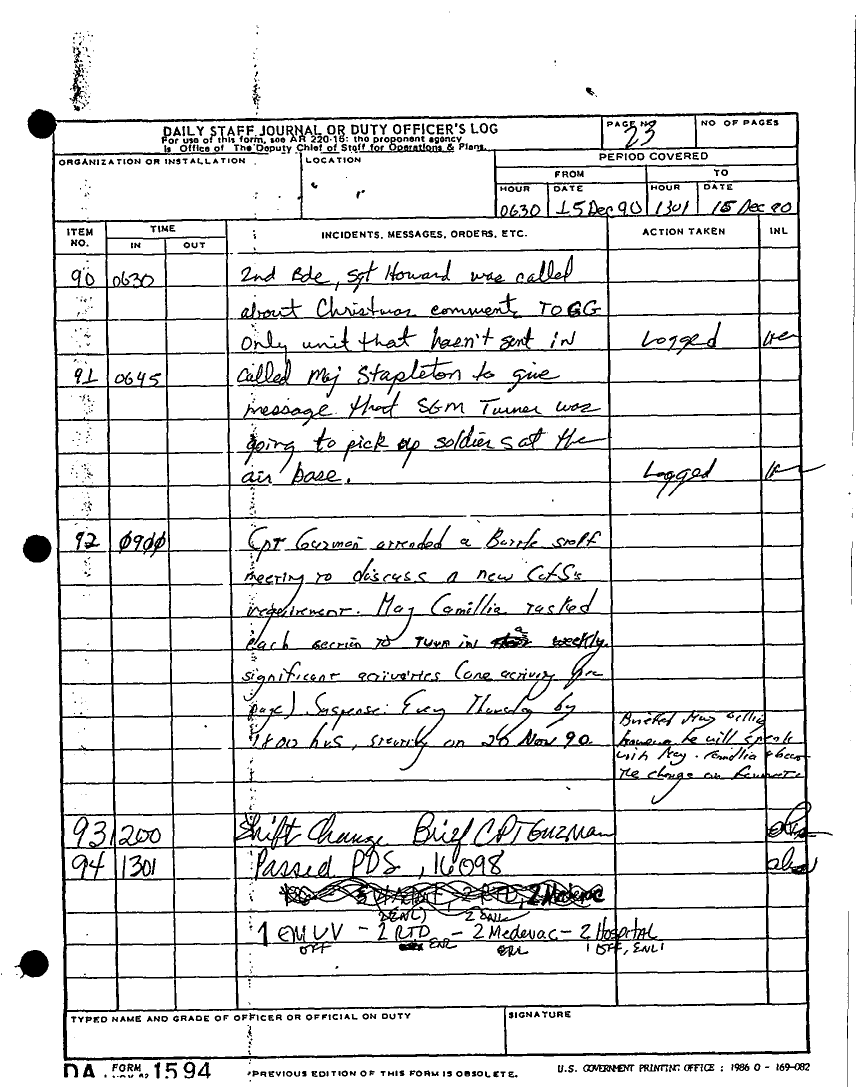 DAILY STAFF JOURNAL OR DUTY OFFICER'S LOG
For use of this form, see AR 220-15; the proponent agency
is Office of The Deputy Chief of Staff for Operations & Plans.
PAGE NO
23
NO OF PAGES
ORGANIZATION OR INSTALLATION
LOCATION
PERIOD COVERED
FROM TO
HOUR DATE HOUR DATE
0630 15 Dec 90 1301 15 Dec 90
ITEM NO. TIME IN OUT INCIDENTS, MESSAGES, ORDERS, ETC. ACTION TAKEN INL
90 0630 2nd Bde, Sgt Howard was called
about Christmas comment, TOGG
only unit that hasn't sent in Logged
91 0645 called Maj Stapleton to give
message that SGM Turner was
going to pick up soldiers at the
air base. Logged
92 0900 CPT Guzman attended a staff
meeting to discuss a new
requirement. May Camillia tasked
each section to turn in a weekly
significant activities (one activity per
page). Suspense: Every Thursday by
1800 hrs, starting on 20 Nov 90.
Briefed May
however he will speak
with May. Camillia about
the change on
93 1200 Shift Change Brief CPT Guzman
94 1301 Passed PDS, 16098
2 RTD, 2 Medevac
2 ENL
1 EMUV - 2 RTD - 2 Medevac - 2 Hospital
OFF ENL ENL 1 OFF, ENL 1
TYPED NAME AND GRADE OF OFFICER OR OFFICIAL ON DUTY
SIGNATURE
DA FORM 1594
PREVIOUS EDITION OF THIS FORM IS OBSOLETE.
U.S. GOVERNMENT PRINTING OFFICE : 1986 O - 169-082